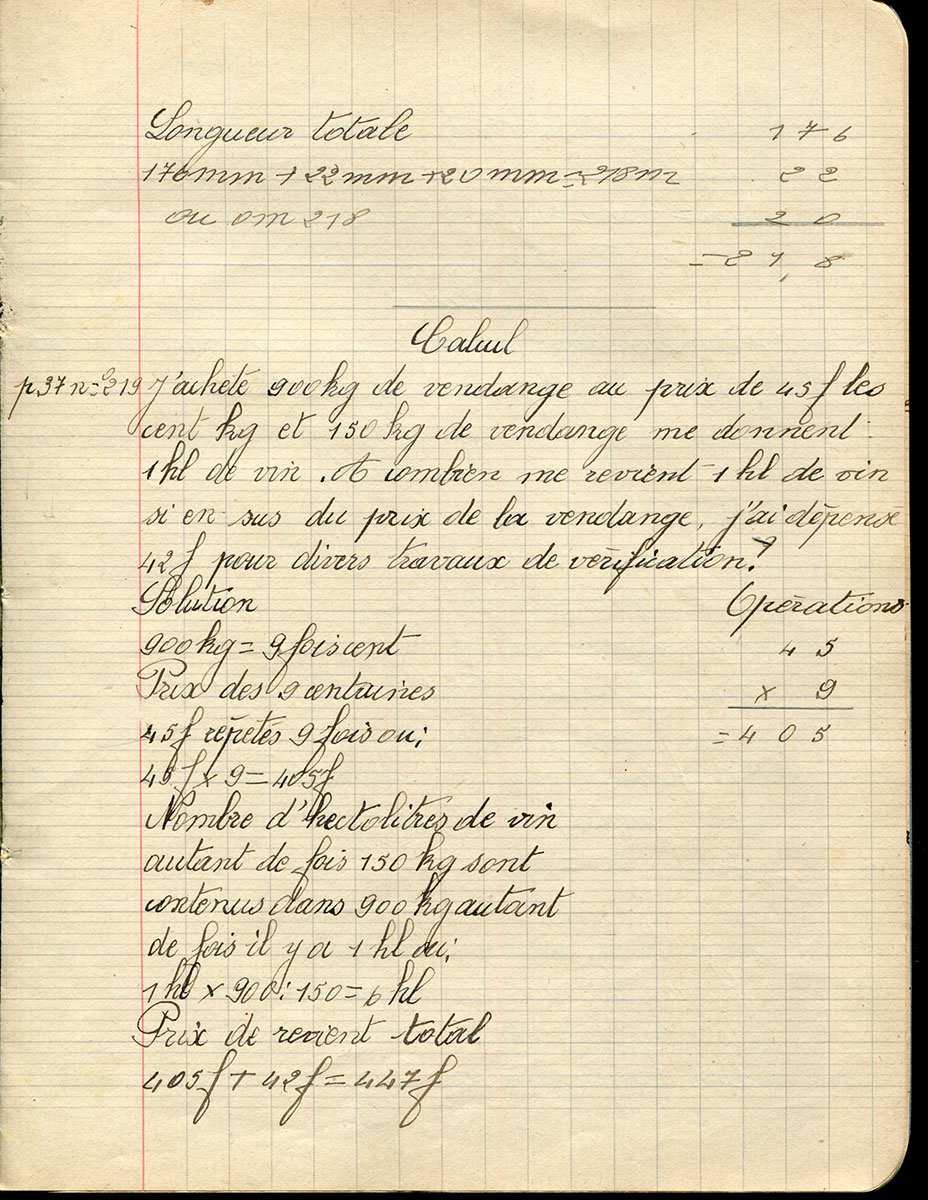 Longueur totale 176
176mm + 22mm + 20mm = 218m 22
ou 0m218 20
= 21,8
Calcul
p.37 n=°219 J'achète 900kg de vendange au prix de 45f les
cent kg et 150 kg de vendange me donnent
1 hl de vin. A combien me revient 1 hl de vin
si en sus du prix de la vendange, j'ai dépensé
42f pour divers travaux de vérification?
Solution Opérations
900kg = 9 fois cent 45
Prix des 9 centaines × 9
45f répétés 9 fois ou; = 405
45f × 9 = 405f
Nombre d'hectolitres de vin
autant de fois 150 kg sont
contenus dans 900 kg autant
de fois il y a 1 hl ou;
1 hl × 900 : 150 = 6 hl
Prix de revient total
405f + 42f = 447f